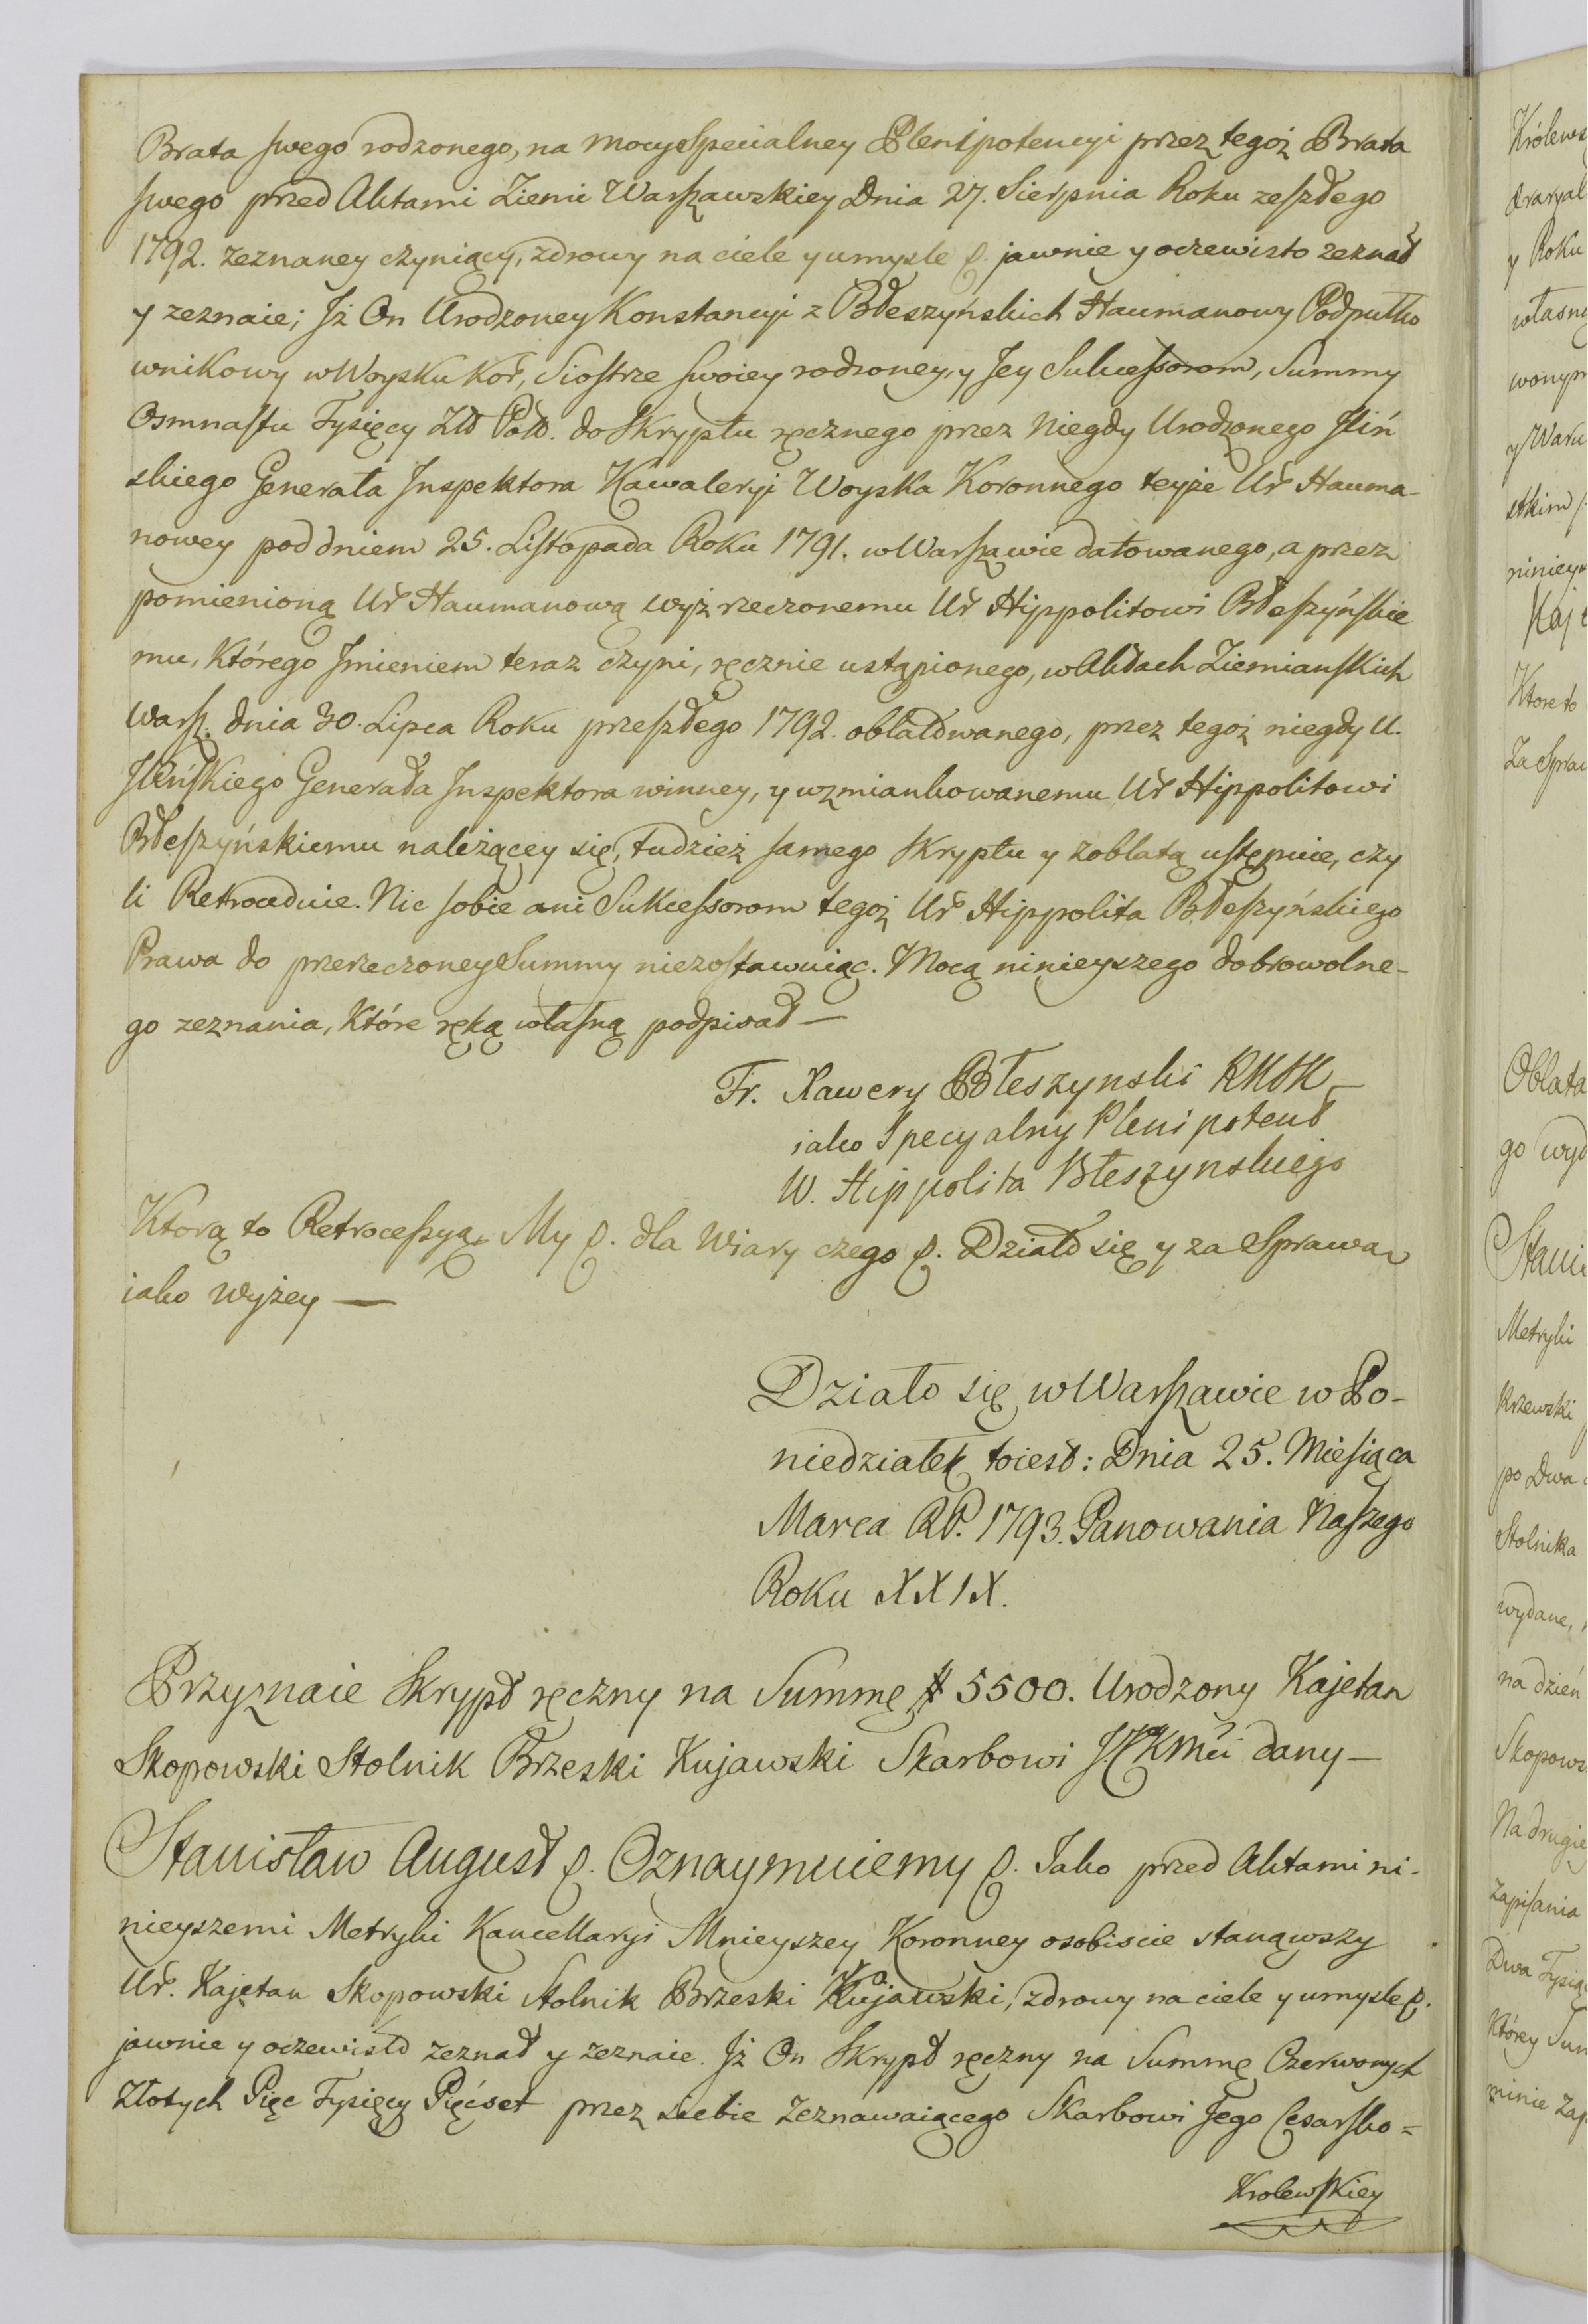 Brata swego rodzonego, na mocy Specialney Plenipotencyi przez tegoż Brata
swego przed Aktami Ziemi Warszawskiey Dnia 27. Sierpnia Roku zeszłego
1792. zeznaney czyniący, zdrowy na ciele y umysle p. jawnie y oczewisto zeznał
y zeznaie; Jż On Urodzoney Konstancyi z Błeszyńskich Haumanowy Podpułko
wnikowy w Woysku Kor̃, Siostrze swoiey rodzoney, y Jey Sukcessorom, Summy
Osmnastu Tysięcy Zł Pol. do Skryptu ręcznego przez Niegdy Urodzonego Jliń
skiego Generała Jnspektora Kawaleryi Woyska Koronnego teyże Ur̃ Hauma-
nowey pod dniem 25. Listopada Roku 1791. w Warszawie datowanego, a przez
pomienioną Ur̃ Haumanową wyż rzeczonemu Ur̃ Hippolitowi Błeszyńskie
mu, Którego Jmieniem teraz czyni, ręcznie ustąpionego, w Aktach Ziemianskich
Warsz. dnia 30. Lipca Roku przeszłego 1792. oblatowanego, przez tegoż niegdy U.
Jlińskiego Generała Jnspektora winney, y wzmiankowanemu Ur̃ Hippolitowi
Błeszyńskiemu należącey się, tudzież samego Skryptu y z oblatą ustępuie, czy
li Retroceduie. Nic sobie ani Sukcessorom tegoż Ur̃ Hippolita Błeszyńskiego
Prawa do przerzeczoney Summy niezostawuiąc. Mocą ninieyszego dobrowolne-
go zeznania, Które ręką własną podpisał —
Fr. Xawery Błeszynski
iako Specyalny Plenipotent
W. Hippolita Błeszynskiego
Którą to Retrocessyą My p. dla Wiary czego p. Działo się y za Sprawą
iako wyżey —
Działo się w Warszawie w Po-
niedziałek toiest: Dnia 25. Miesiąca
Marca RP. 1793. Panowania Naszego
Roku XXIX.
Przyznaie Skrypt ręczny na Summę # 5500. Urodzony Kajetan
Skopowski Stolnik Brzeski Kujawski Skarbowi JCKMci dany —
Stanisław August p. Oznaymuiemy p. Jako przed Aktami ni-
nieyszemi Metryki Kancellaryi Mnieyszey Koronney osobiscie stanąwszy
Ur̃. Kajetan Skopowski Stolnik Brzeski Kujawski, zdrowy na ciele y umysle p.
jawnie y oczewisto zeznał y zeznaie. Jż On Skrypt ręczny na Summę Czerwonych
Złotych Pięc Tysięcy Pięćset przez siebie Zeznawaiącego Skarbowi Jego Cesarsko=
Krolewskiey
Królews
y Roku
własny
y Waru
ninieys
Kaje
Ktore to
Za Spraw
Oblata
go wyd
Stani
Metryki
krzewski
po Dwa
Stolnika
wydane,
na dzień
Skopows
Na drugie
Zapisania
Dwa Tysiąc
Którey Sum
minie Zap